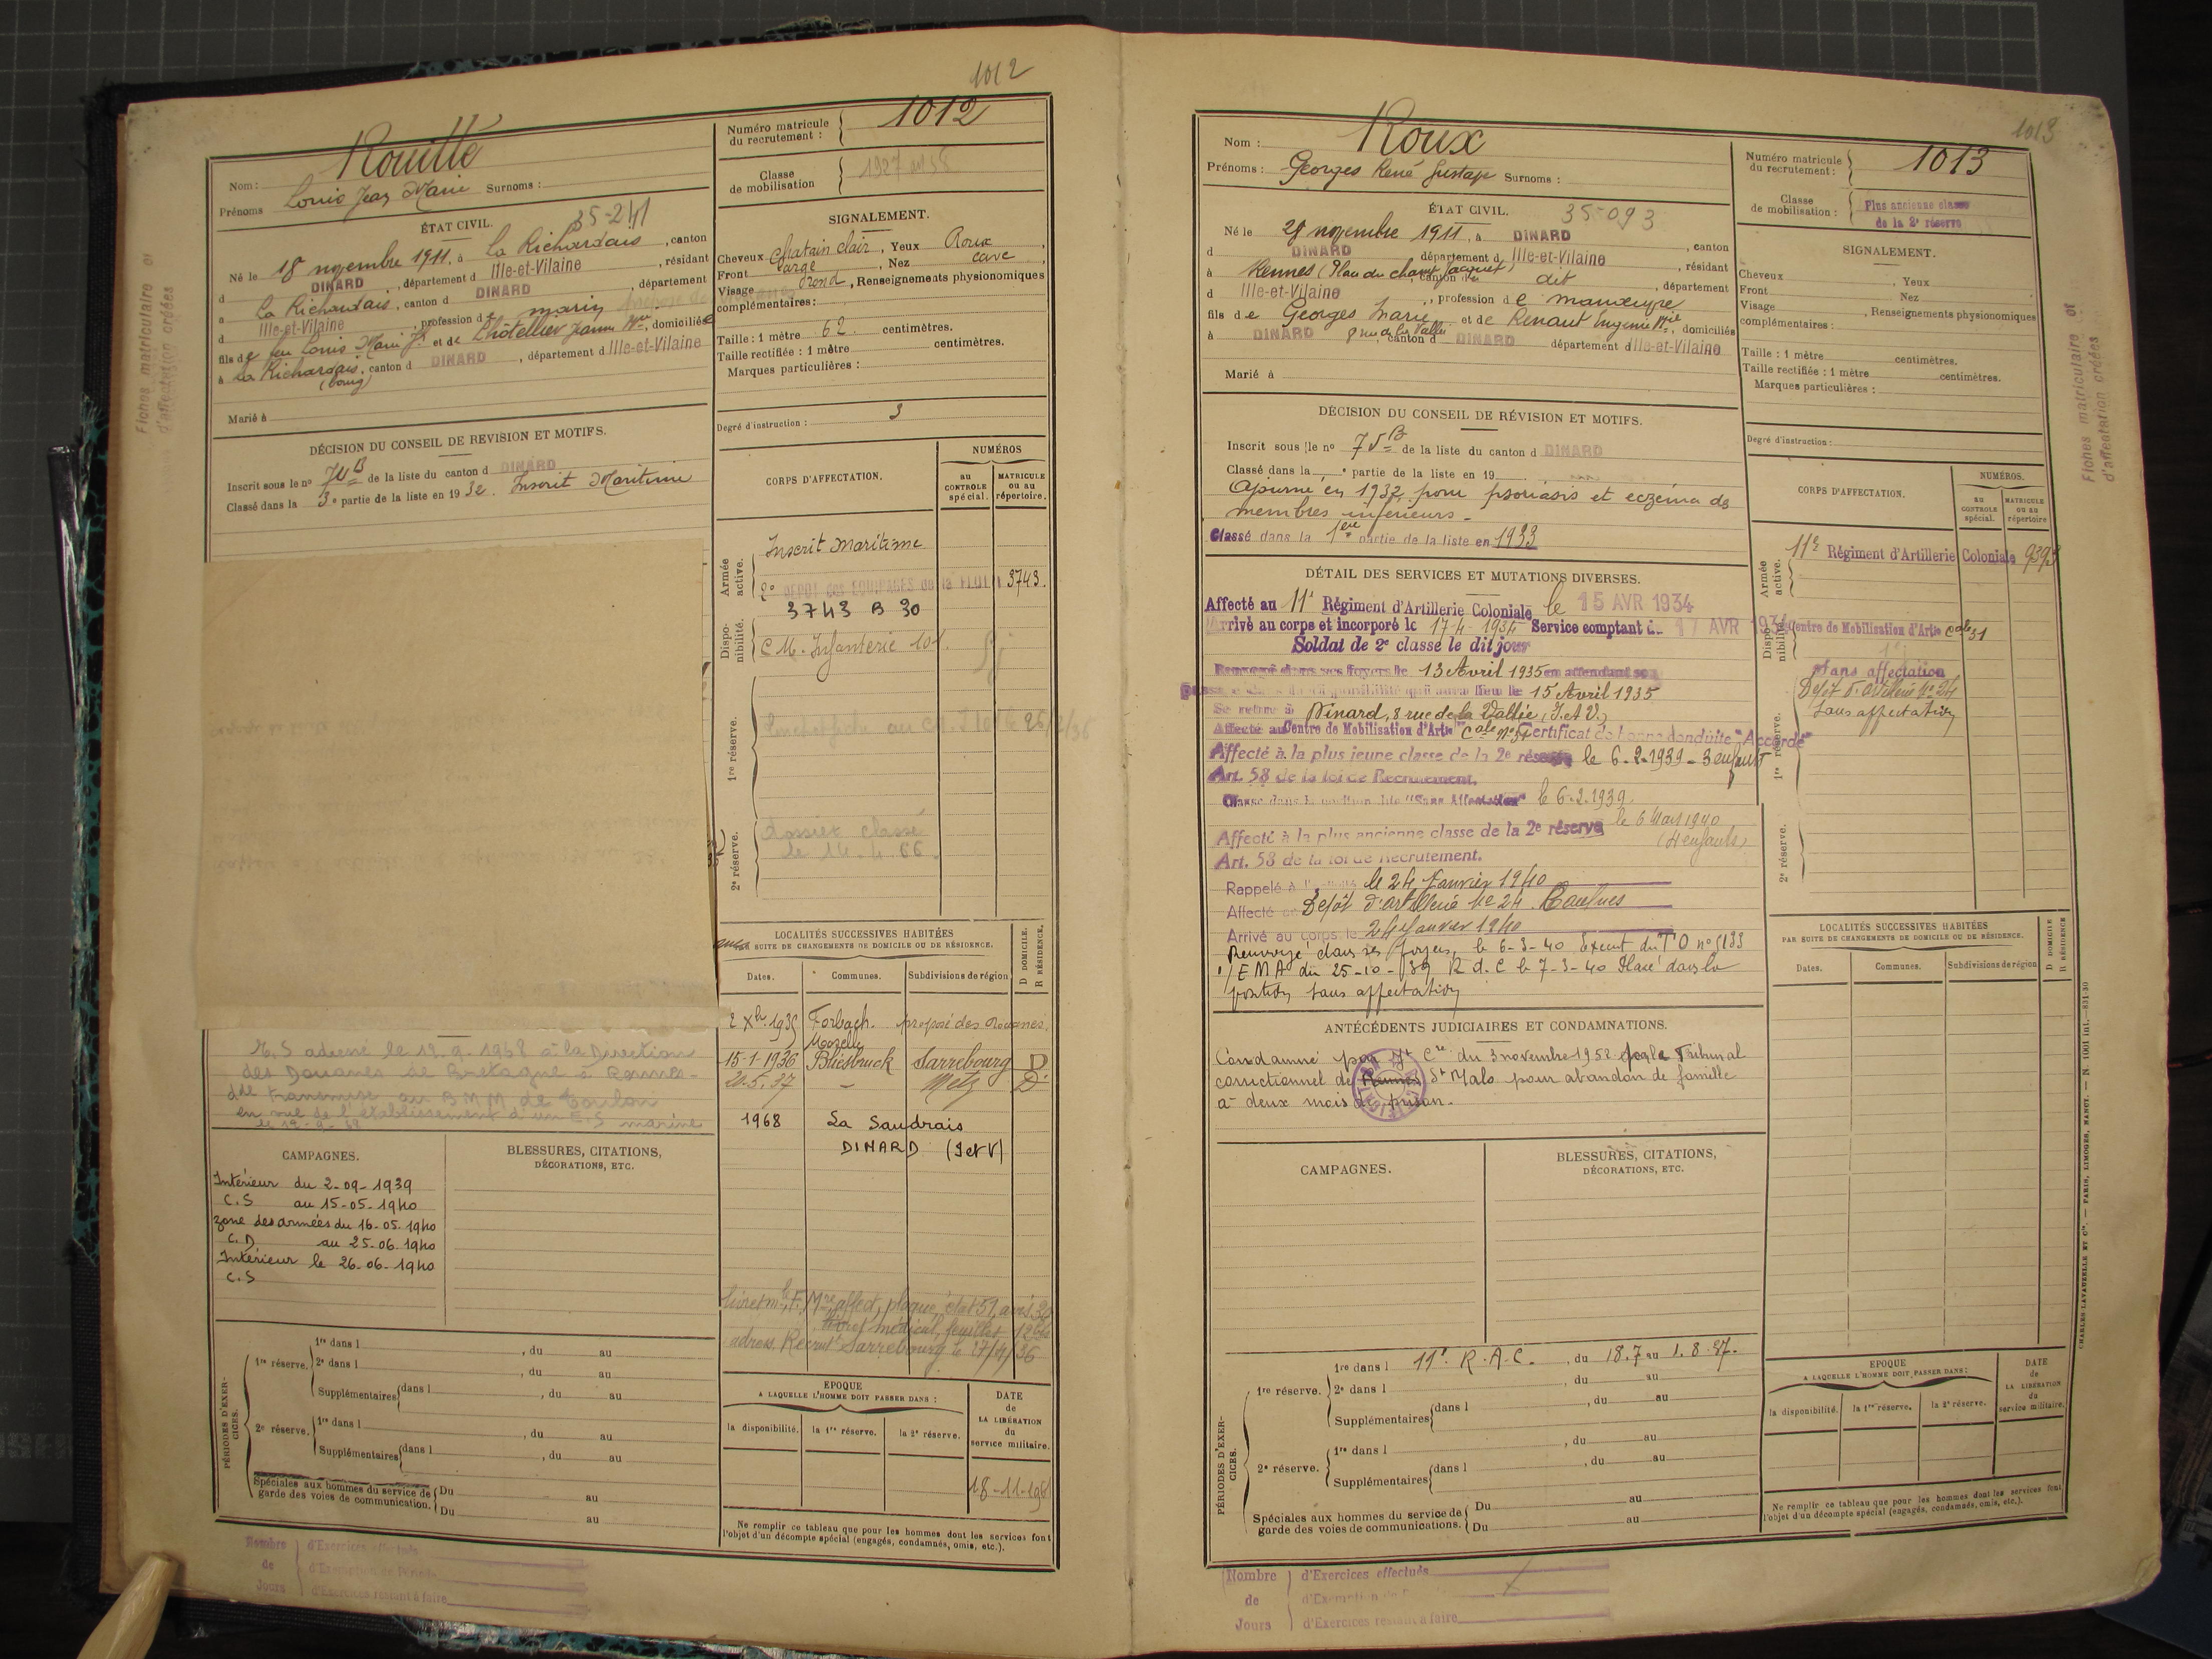 1012
Nom : Rouillé
Prénoms Louis Jean Marie Surnoms :
Numéro matricule du recrutement : 1012
Classe de mobilisation
ÉTAT CIVIL. 35-241
Né le 18 novembre 1911, à La Richardais, canton
d DINARD, département d Ille-et-Vilaine, résidant
à La Richardais, canton d DINARD, département
d Ille-et-Vilaine, profession de marin
fils de feu Louis Marie Jh et de Lhôtellier Jeanne Mie, domiciliée
à La Richardais, canton d DINARD, département d Ille-et-Vilaine
(bourg)
Marié à
SIGNALEMENT.
Cheveux Chatain clair, Yeux Roux,
Front large, Nez cave,
Visage rond, Renseignements physionomiques
complémentaires :
Taille : 1 mètre 62 centimètres.
Taille rectifiée : 1 mètre centimètres.
Marques particulières :
Degré d'instruction : 3
DÉCISION DU CONSEIL DE REVISION ET MOTIFS.
Inscrit sous le no de la liste du canton d DINARD
Classé dans la 3e partie de la liste en 1932. Inscrit Maritime
CORPS D'AFFECTATION.
NUMÉROS
au CONTROLE spécial.
MATRICULE ou au répertoire.
Armée active.
Inscrit Maritime
2e DEPOT des EQUIPAGES de la FLOTTE 3743.
3743 B 30
Disponibilité.
C M. Infanterie 101.
1re réserve.
2e réserve.
dossier classé
le 14.4.66.
LOCALITÉS SUCCESSIVES HABITÉES
PAR SUITE DE CHANGEMENTS DE DOMICILE OU DE RÉSIDENCE.
D DOMICILE.
R RÉSIDENCE.
Dates. Communes. Subdivisions de région
2 Xbre 1935 Forbach. préposé des Douanes.
Moselle
15-1-1936 Bliesbruck Sarrebourg D
20.5.37 - Metz D
1968 La Saudrais
DINARD (I et V)
E.S adressé le 19.9.1968 à la Direction
des Douanes de Bretagne à Rennes-
dde transmise au BMM de Toulon
en vue de l'établissement d'un E.S marine
CAMPAGNES.
BLESSURES, CITATIONS,
DÉCORATIONS, ETC.
Intérieur du 2-09-1939
C.S au 15-05-1940
zone des armées du 16-05-1940
C.D au 25.06.1940
Intérieur le 26-06-1940
C.S
livret médical, feuillet
Sarrebourg le 27/4/36
PÉRIODES D'EXERCICES.
1re réserve. 1re dans l , du au
2e dans l , du au
Supplémentaires dans l , du au
2e réserve. 1re dans l , du au
Supplémentaires dans l , du au
Spéciales aux hommes du service de garde des voies de communication. Du au
Du au
EPOQUE
A LAQUELLE L'HOMME DOIT PASSER DANS :
la disponibilité. la 1re réserve. la 2e réserve.
DATE de LA LIBÉRATION du service militaire.
Ne remplir ce tableau que pour les hommes dont les services font
l'objet d'un décompte spécial (engagés, condamnés, omis, etc.).
Nombre de Jours
d'Exercices effectués
d'Exemption de Période
d'Exercices restant à faire
Fiches matriculaire et
d'affectation créées
1013
Nom : Roux
Prénoms : Georges René Gustave Surnoms :
Numéro matricule du recrutement : 1013
Classe de mobilisation : Plus ancienne classe
de la 2e réserve
ÉTAT CIVIL. 35-093
Né le 28 novembre 1911, à DINARD, canton
d DINARD département d Ille-et-Vilaine, résidant
à Rennes (Place du champ Jacquet) canton du dit, département
d Ille-et-Vilaine, profession de manœuvre
fils de Georges Marie et de Renaut Eugénie Mie, domiciliés
à DINARD 8 rue de la Vallée, canton d DINARD département d Ille-et-Vilaine
Marié à
SIGNALEMENT.
Cheveux , Yeux
Front Nez
Visage , Renseignements physionomiques
complémentaires :
Taille : 1 mètre centimètres.
Taille rectifiée : 1 mètre centimètres.
Marques particulières :
Degré d'instruction :
DÉCISION DU CONSEIL DE RÉVISION ET MOTIFS.
Inscrit sous le no 75 B de la liste du canton d DINARD
Classé dans la e partie de la liste en 19
Ajourné en 1932 pour psoriasis et eczéma des
membres inférieurs -
Classé dans la 1ère partie de la liste en 1933
DÉTAIL DES SERVICES ET MUTATIONS DIVERSES.
Affecté au 11e Régiment d'Artillerie Coloniale le 15 AVR 1934
Arrivé au corps et incorporé le 17-4-1934 Service comptant du 17 AVR 1934
Soldat de 2e classe le dit jour
Renvoyé dans ses foyers le 13 Avril 1935 en attendant son
passage dans la disponibilité qui aura lieu le 15 Avril 1935
Se retire à Dinard, 8 rue de la Vallée, (I. et V.)
Affecté au Centre de Mobilisation d'Artie Cale No 31 Certificat de bonne conduite "Accordé"
Affecté à la plus jeune classe de la 2e réserve le 6-2-1939 - 3 enfants
Art. 58 de la loi de Recrutement.
Classé dans la position dite "Sans Affectation" le 6.2.1939.
Affecté à la plus ancienne classe de la 2e réserve le 6 Mars 1940
(4 enfants)
Art. 58 de la loi de Recrutement.
Rappelé à l'activité le 24 Janvier 1940
Affecté au Dépôt d'artillerie No 24 Caulnes
Arrivé au corps le 24 Janvier 1940
Renvoyé dans ses foyers, le 6-3-40 Exécut du T O no 5133
1/EMA du 25-10-39 R. d. C le 7-3-40 Placé dans la
position sans affectation
ANTÉCÉDENTS JUDICIAIRES ET CONDAMNATIONS.
Condamné par Jt Cre du 3 novembre 1952 par le Tribunal
correctionnel de Rennes St Malo pour abandon de famille
à deux mois de prison.
CORPS D'AFFECTATION.
NUMÉROS.
au CONTROLE spécial.
MATRICULE ou au répertoire
Armée active.
11e Régiment d'Artillerie Coloniale 9393
Disponibilité.
Centre de Mobilisation d'Artie Cale 31
Sans affectation
Dépôt d'artillerie No 24
Sans affectation
1re réserve.
2e réserve.
LOCALITÉS SUCCESSIVES HABITÉES
PAR SUITE DE CHANGEMENTS DE DOMICILE OU DE RÉSIDENCE.
D DOMICILE
R RÉSIDENCE
Dates. Communes. Subdivisions de région
CAMPAGNES.
BLESSURES, CITATIONS,
DÉCORATIONS, ETC.
PÉRIODES D'EXERCICES.
1re réserve. 1re dans l 11e R.A.C. , du 18.7 au 1.8.37.
2e dans l , du au
Supplémentaires dans l , du au
2e réserve. 1re dans l , du au
Supplémentaires dans l , du au
Spéciales aux hommes du service de garde des voies de communications. Du au
Du au
EPOQUE
A LAQUELLE L'HOMME DOIT PASSER DANS :
la disponibilité. la 1re réserve. la 2e réserve.
DATE de LA LIBÉRATION du service militaire.
Ne remplir ce tableau que pour les hommes dont les services font
l'objet d'un décompte spécial (engagés, condamnés, omis, etc.).
Nombre de Jours
d'Exercices effectués
d'Exemption de
d'Exercices restant à faire
Fiches matriculaire et
d'affectation créées
CHARLES-LAVAUZELLE ET Cie. — PARIS, LIMOGES, NANCY. — N. 1001 int.—831-30